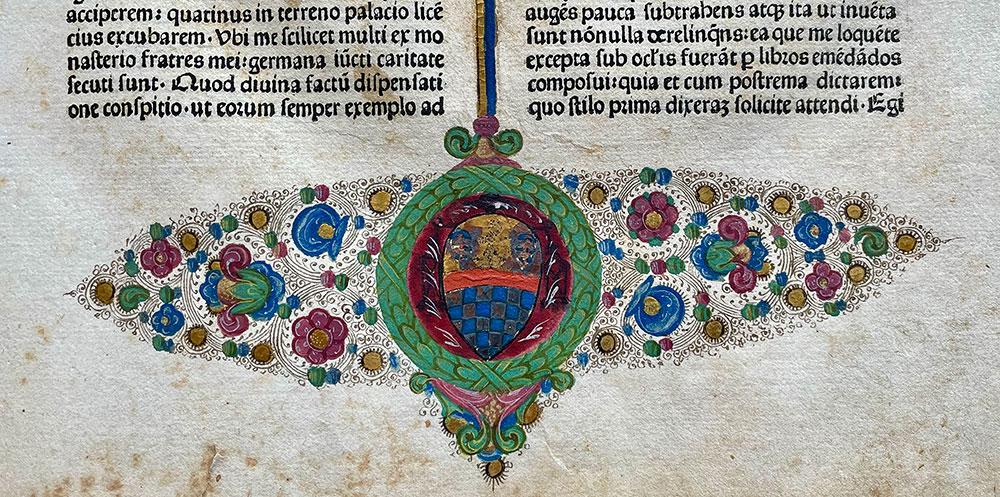 acciperem: quatinus in terreno palacio licē
cius excubarem. Vbi me scilicet multi ex mo
nasterio fratres mei: germana iūcti caritate
secuti sunt. Quod diuina factū dispensati
one conspitio. ut eorum semper exemplo ad
augēs pauca subtrahens atqꝫ ita ut inuēta
sunt nōnulla derelinq̄ns: ea que me loquēte
excepta sub oclīs fuerāt ꝑ libros emēdādos
composui: quia et cum postrema dictarem:
quo stilo prima dixeraꝫ solicite attendi. Egi